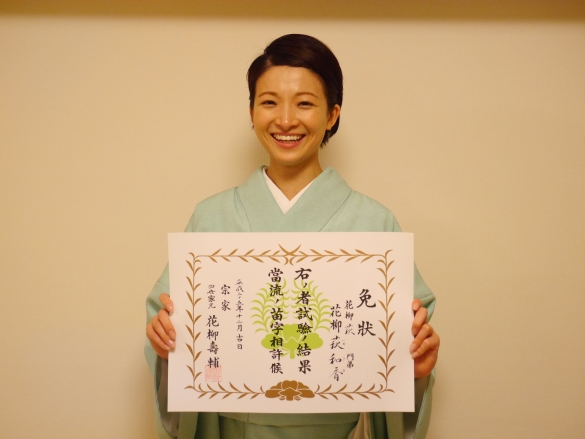 免状
花柳萩
門弟
花柳萩和音
右ノ者試驗ノ結果
當流ノ苗字相許候
平成二十五年十二月吉日
宗家
四世家元 花柳壽輔